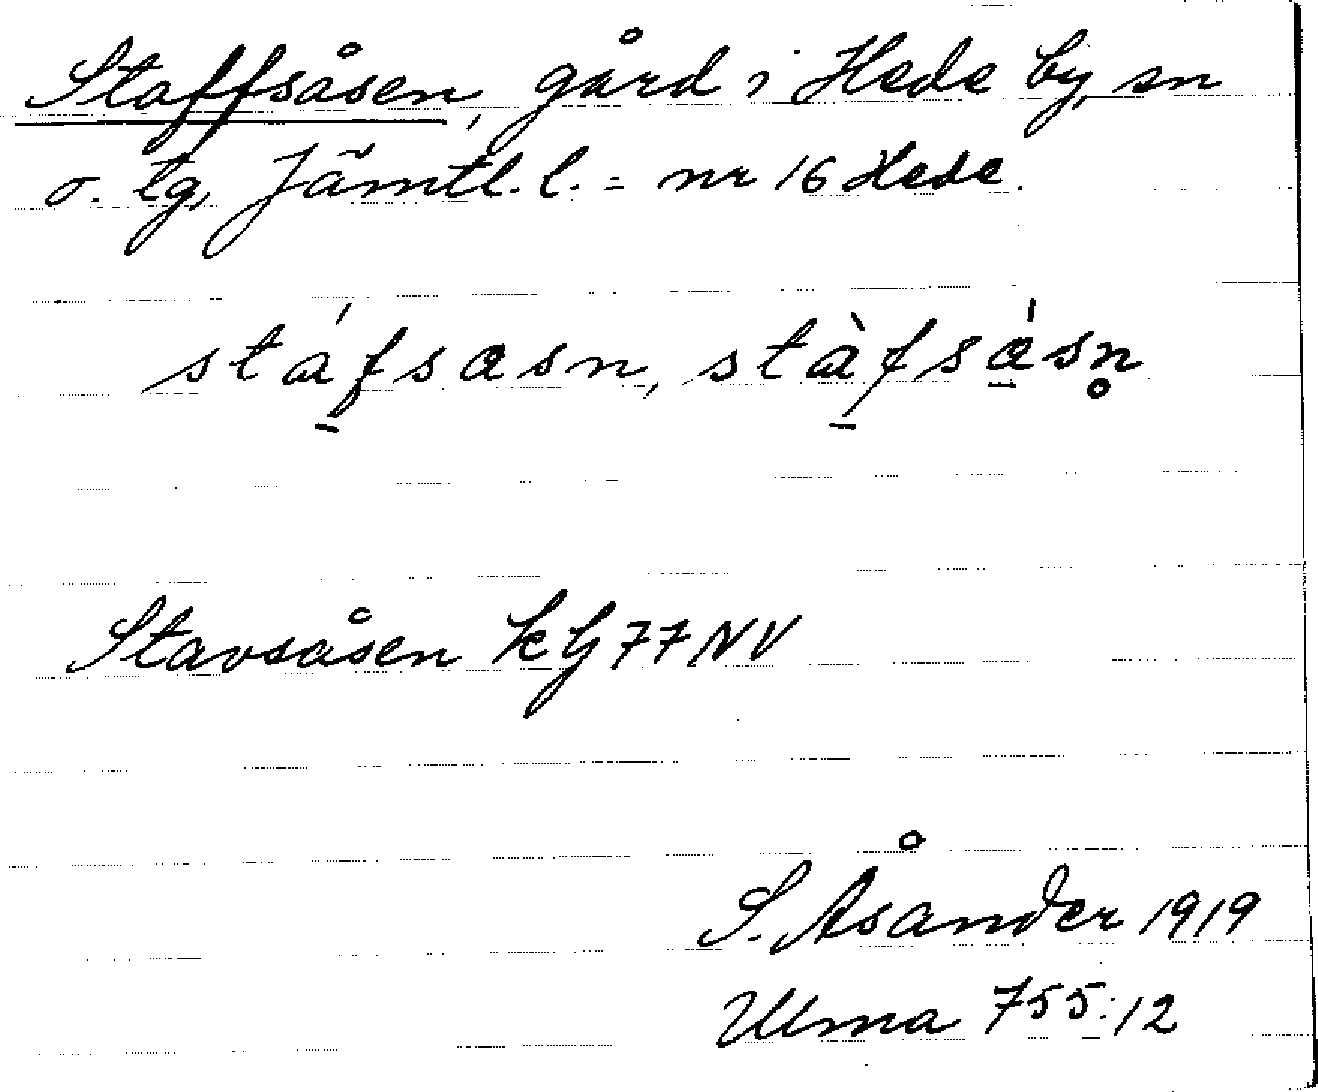 Staffsåsen, gård i Hede by, sn
o. tg, Jämtl. l. = nr 16 Hede.
stáf̠sasn, stàf̠sa̠̍sn̥
Stavsåsen k Gj 77 NV
S. Åsander 1919
Ulma 755:12